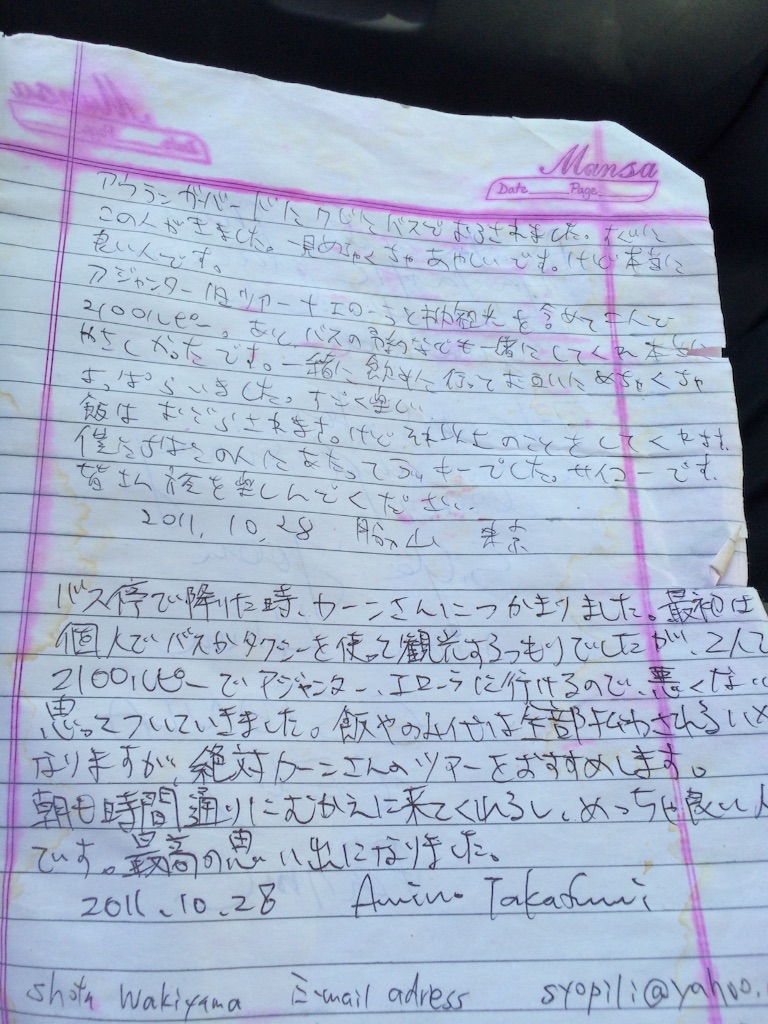 Mansa
Mansa
Date Page
アウランガバードに バスでおろされました。すぐに
この人が来ました。一見めちゃくちゃあやしいです。けど本当に
良い人です。
アジャンター1日ツアー+エローラと 観光を含めて二人で
2100ルピー。あと、バスの予約なども一緒にしてくれ本当に
やさしかったです。一緒に飲みに行ってお互いにめちゃくちゃ
よっぱらいました。すごく楽しい
飯はおごらされます。けどそれ以上のことをしてくれます
僕たちはこの人にあたってラッキーでした。サイコーです
皆さん旅を楽しんでください。
2011.10.28 脇山 東京
バス停で降りた時、カーンさんにつかまりました。最初は
個人でバスかタクシーを使って観光するつもりでしたが、2人で
2100ルピーでアジャンター、エローラに行けるので、悪くない
思ってついていきました。飯やのみ代は全部払わされるハメ
なりますが、絶対カーンさんのツアーをおすすめします。
朝も時間通りにむかえに来てくれるし、めっちゃ良い人
です。最高の思い出になりました。
2011.10.28 Takafumi
Shota Wakiyama E-mail adress syopili@yahoo.